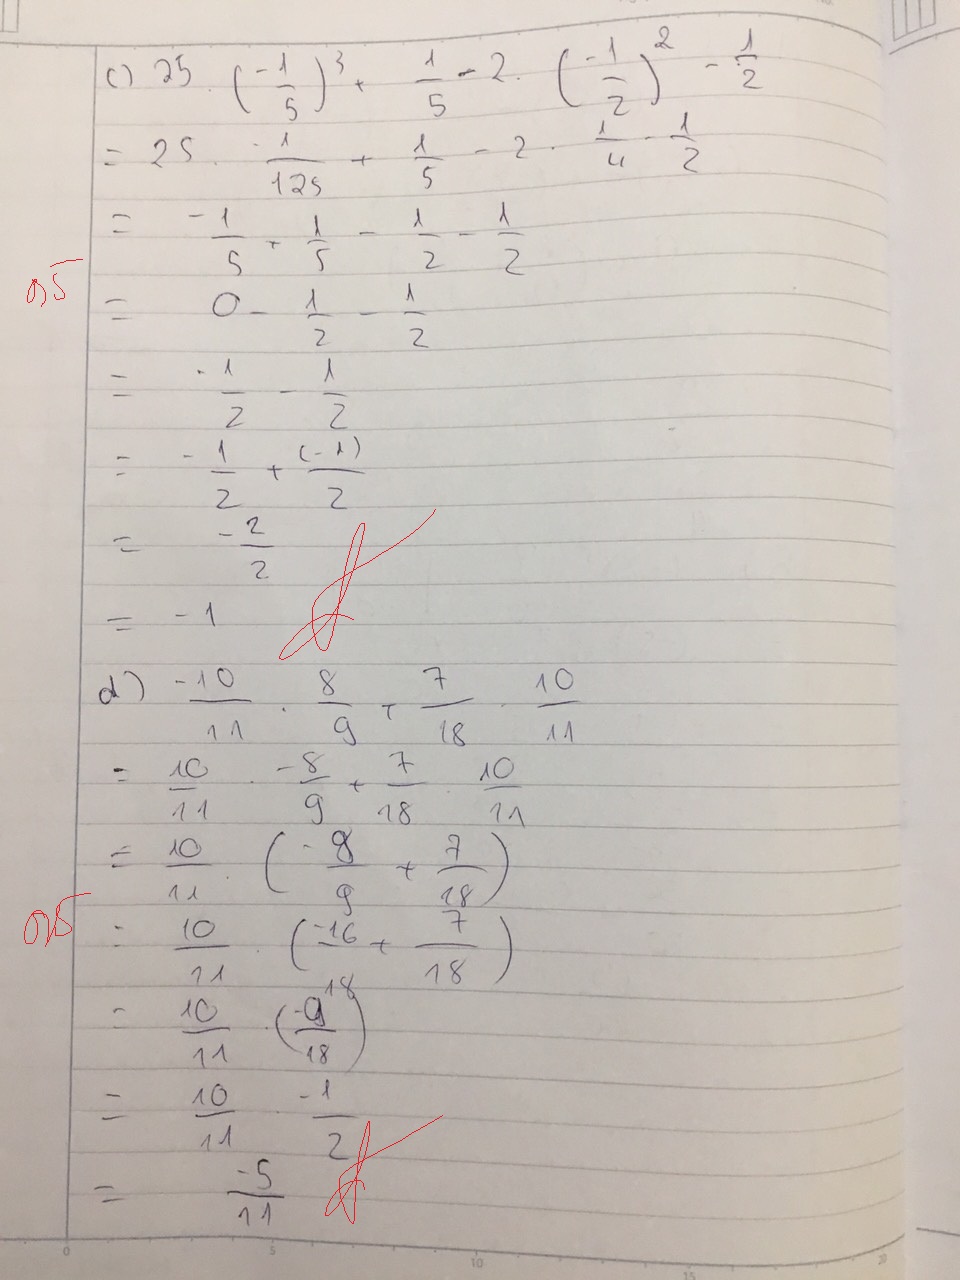 c) 25 . (-1/5)^3 + 1/5 - 2 . (-1/2)^2 - 1/2
= 25 . -1/125 + 1/5 - 2 . 1/4 - 1/2
= -1/5 + 1/5 - 1/2 - 1/2
0,5
= 0 - 1/2 - 1/2
= -1/2 - 1/2
= -1/2 + (-1)/2
= -2/2
= -1
d) -10/11 . 8/9 + 7/18 . 10/11
= 10/11 . -8/9 + 7/18 . 10/11
= 10/11 . (-8/9 + 7/18)
0,5
= 10/11 . (-16/18 + 7/18)
= 10/11 . (-9/18)
= 10/11 . -1/2
= -5/11
0 5 10 15